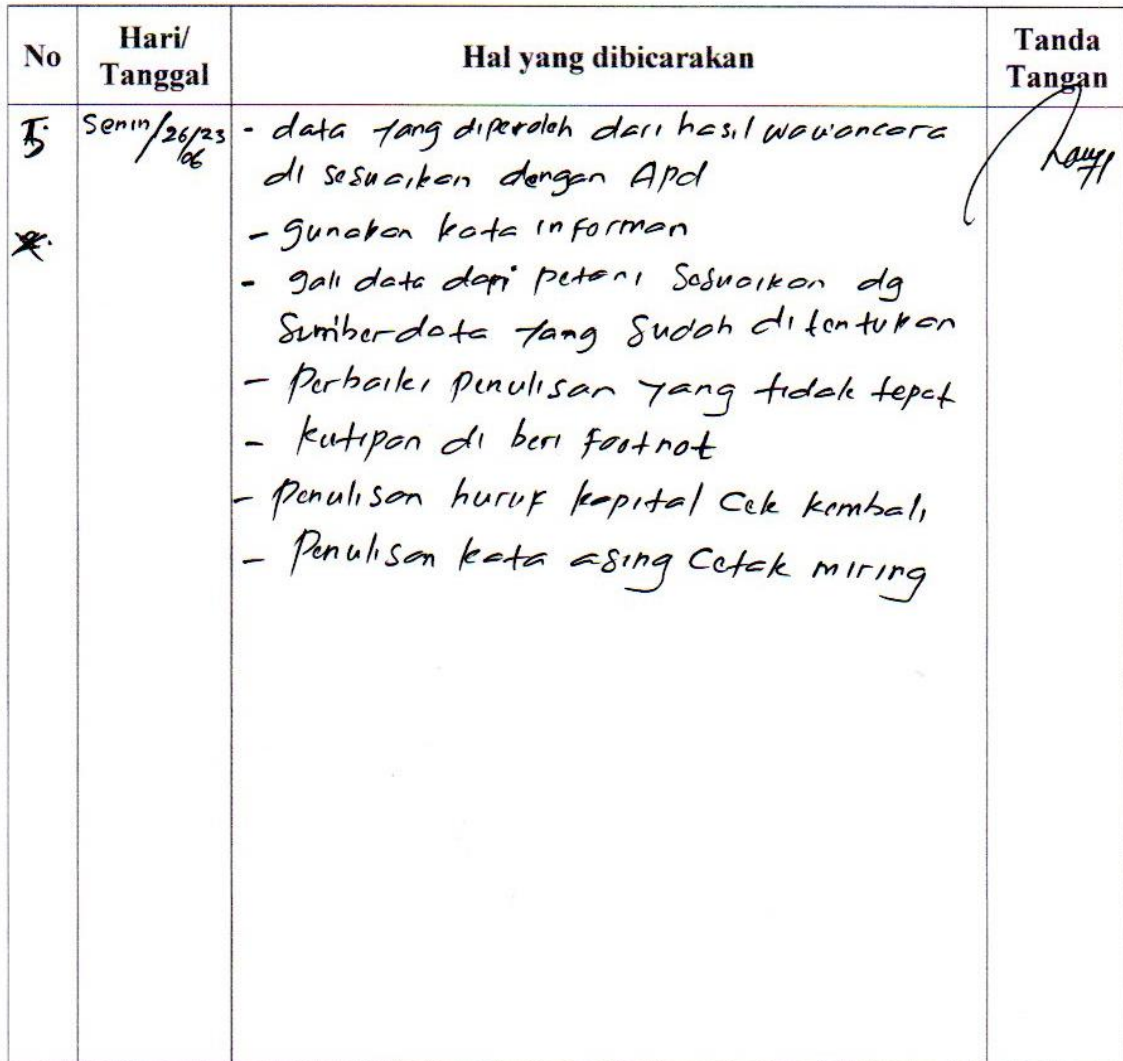 No
Hari/
Tanggal
Hal yang dibicarakan
Tanda
Tangan
Senin/26/23
06
- data yang diperoleh dari hasil wawancara
di sesuaikan dengan Apd
- gunakan kata informan
- gali data dari petani Sesuaikan dg
Sumber data yang sudah ditentukan
- Perbaiki penulisan yang tidak tepat
- kutipan di beri footnot
- Penulisan huruf kapital Cek kembali
- Penulisan kata asing Cetak miring